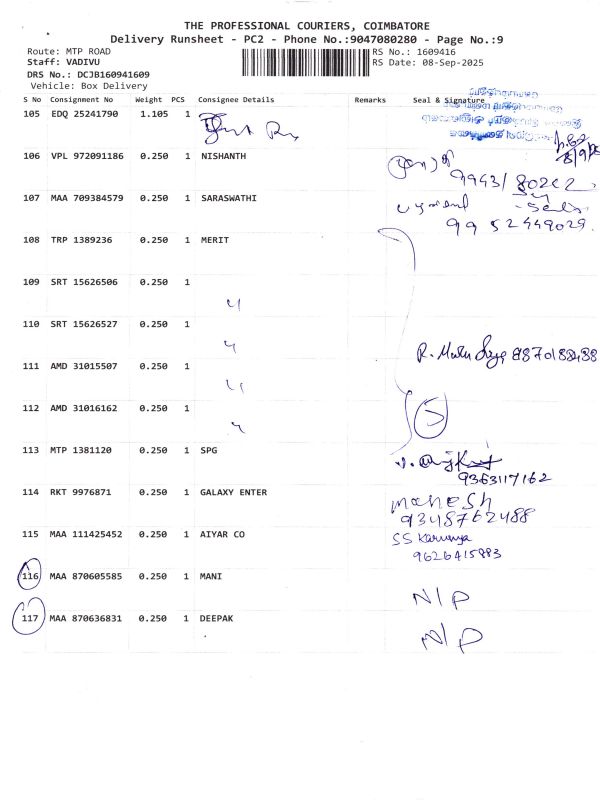 THE PROFESSIONAL COURIERS, COIMBATORE
Delivery Runsheet - PC2 - Phone No.:9047080280 - Page No.:9
Route: MTP ROAD
RS No.: 1609416
Staff: VADIVU
RS Date: 08-Sep-2025
DRS No.: DCJB160941609
Vehicle: Box Delivery
S No Consignment No Weight PCS Consignee Details Remarks Seal & Signature
105 EDQ 25241790 1.105 1
8/9/25
106 VPL 972091186 0.250 1 NISHANTH
99431 80202
107 MAA 709384579 0.250 1 SARASWATHI
99 52449029
108 TRP 1389236 0.250 1 MERIT
109 SRT 15626506 0.250 1
110 SRT 15626527 0.250 1
111 AMD 31015507 0.250 1
112 AMD 31016162 0.250 1
5
113 MTP 1381120 0.250 1 SPG
9363117162
114 RKT 9976871 0.250 1 GALXY ENTER
MAHESH
9348762488
115 MAA 111425452 0.250 1 AIYAR CO
SS Karunya
9626415883
116 MAA 870605585 0.250 1 MANI
N/P
117 MAA 870636831 0.250 1 DEEPAK
N/P